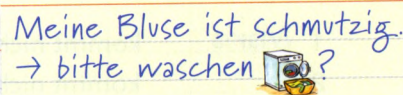 Meine Bluse ist schmutzig.
→ bitte waschen ?